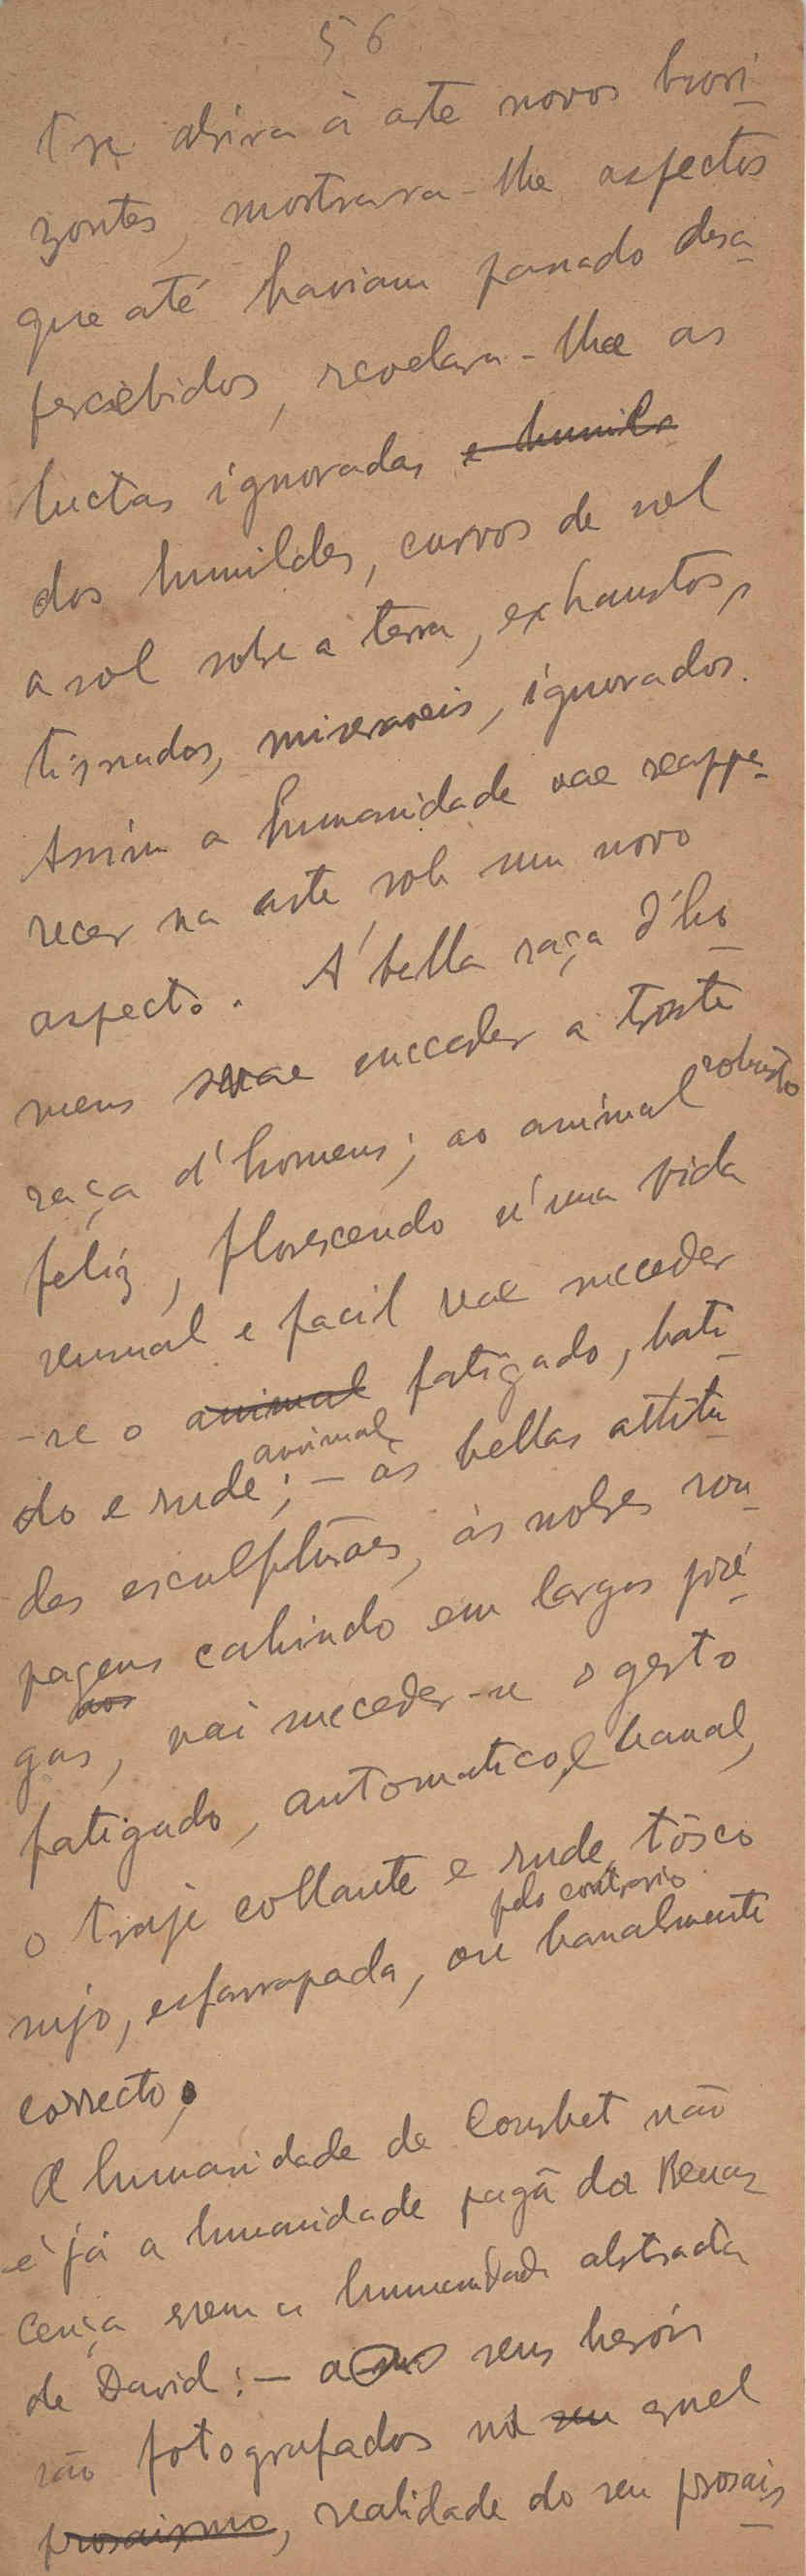 56
tre abrira á arte novos hori-
zontes, mostrara-lhe aspectos
que até haviam passado desa-
percebidos, revelara-lhe as
luctas ignoradas e humild
dos humildes, curvos de sol
a sol sobre a terra, exhaustos,
tisnados, miseraveis, ignorados.
Assim a humanidade vae reappa-
recer na arte sob um novo
aspecto. A' bella raça d'ho-
mens vae succeder a triste
raça d'homens; ao animal robusto
feliz, florescendo n'uma vida
sensual e facil vae succeder
-se o animal fatigado, bati-
animal
do e rude; – ás bellas attitu-
des esculpturaes, ás nobres rou-
pagens cahindo em largas pré-
aos
gas, vai succeder-se o gesto
fatigado, automatico, e banal,
o traje collante e rude, tôsco
pelo contrario
sujo, esfarrapada, ou banalmente
correcto.
A humanidade de Courbet não
é já a humanidade pagã da Renas
cença nem a humanidade abstrada
de David: – os seus heróis
são fotografados na seu cruel
prosaismo, realidade do seu prosais-